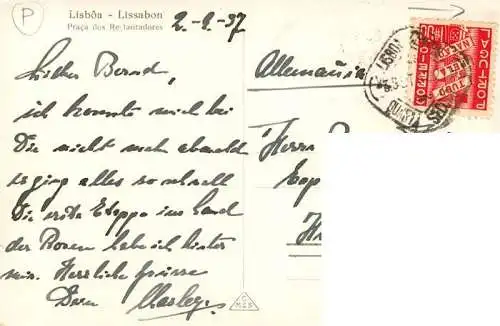 P
Lisbôa - Lissabon
Praça dos Restauradores
2-2-37
Lieber Bernd,
ich konnte mich bei
Dir nicht mehr abmelden
es ging alles so schnell
Die erste Etappe im Land
der Rosen habe ich hinter
mir. Herzliche Grüsse
Dein
Allemanha
Herrn
LISBOA
PORTUGAL
TUDO PELA NAÇÃO